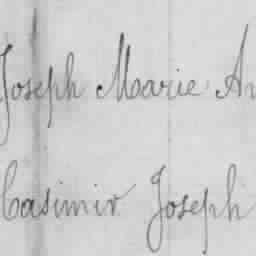 Joseph Marie An
Casimir Joseph